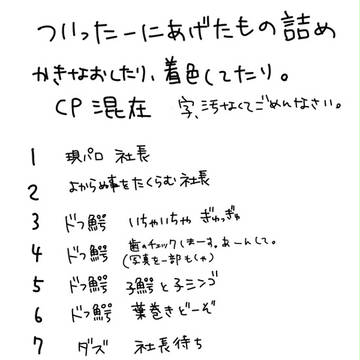 ついったーにあげたもの詰め
かきなおしたり、着色してたり。
CP混在 字、汚なくてごめんなさい。
1 現パロ 社長
2 よからぬ事をたくらむ社長
3 ドフ鰐 いちゃいちゃ ぎゅっぎゅ
4 ドフ鰐 歯のチェックしまーす。あーんして。
(写真を一部もしゃ)
5 ドフ鰐 子鰐と子ミンゴ
6 ドフ鰐 葉巻きどーぞ
7 ダズ 社長待ち